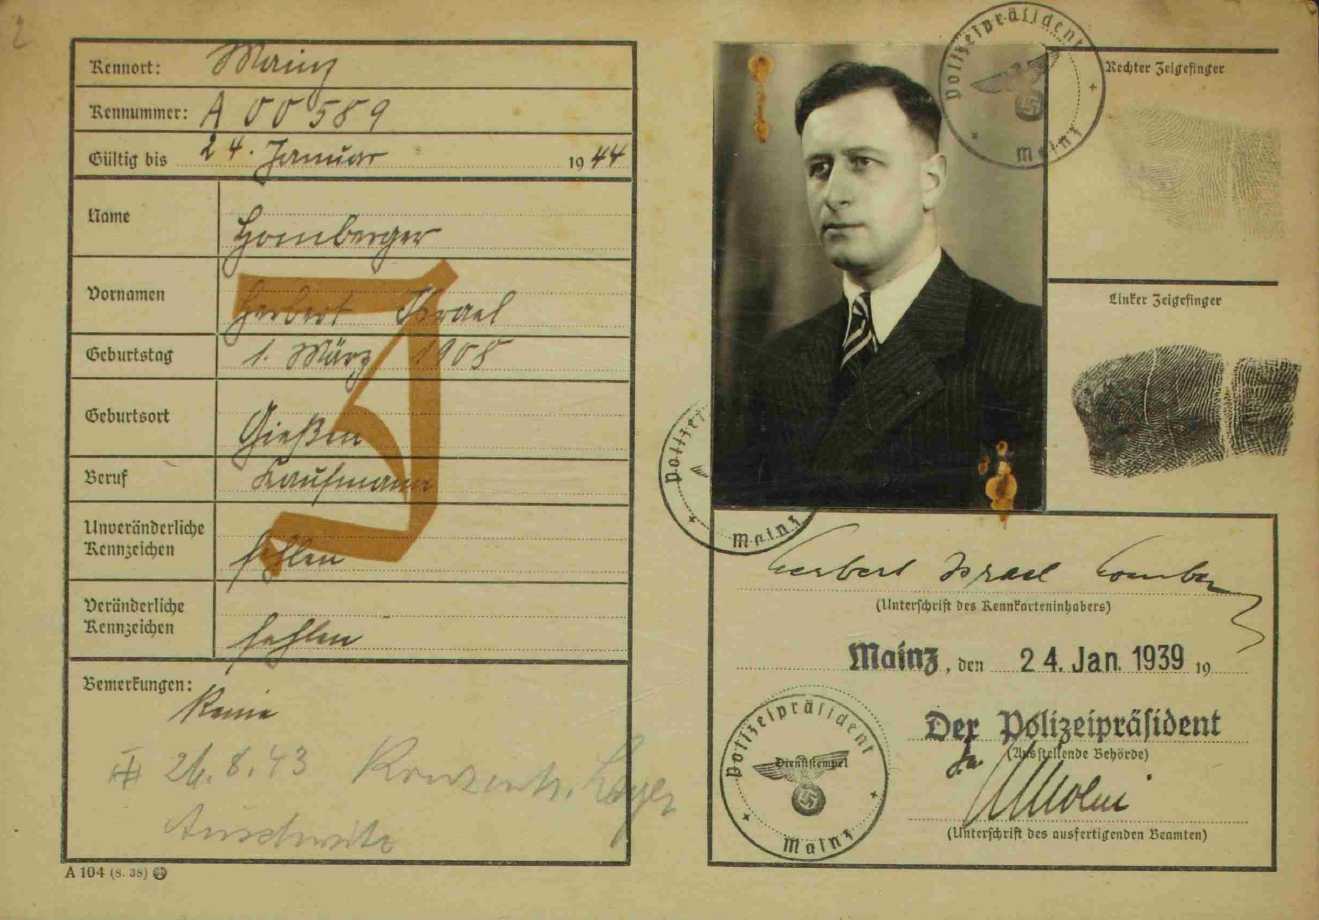 2
Kennort: Mainz
Kennummer: A 00589
Gültig bis 24. Januar 1944
Name Homberger
Vornamen Herbert Israel
Geburtstag 1. März 1908
Geburtsort Gießen
Beruf Kaufmann
Unveränderliche
Kennzeichen fehlen
Veränderliche
Kennzeichen fehlen
Bemerkungen:
Keine
26.8.43 Konzentr. Lager
Auschwitz
A 104 (8. 38)
J
Polizeipräsident
Mainz
Rechter Zeigefinger
Linker Zeigefinger
Polizei
Mainz
Herbert Israel Homberger
(Unterschrift des Kennkarteninhabers)
Mainz, den 24. Jan. 1939 19
Der Polizeipräsident
(Ausstellende Behörde)
Polizeipräsident
Dienststempel
Mainz
(Unterschrift des ausfertigenden Beamten)